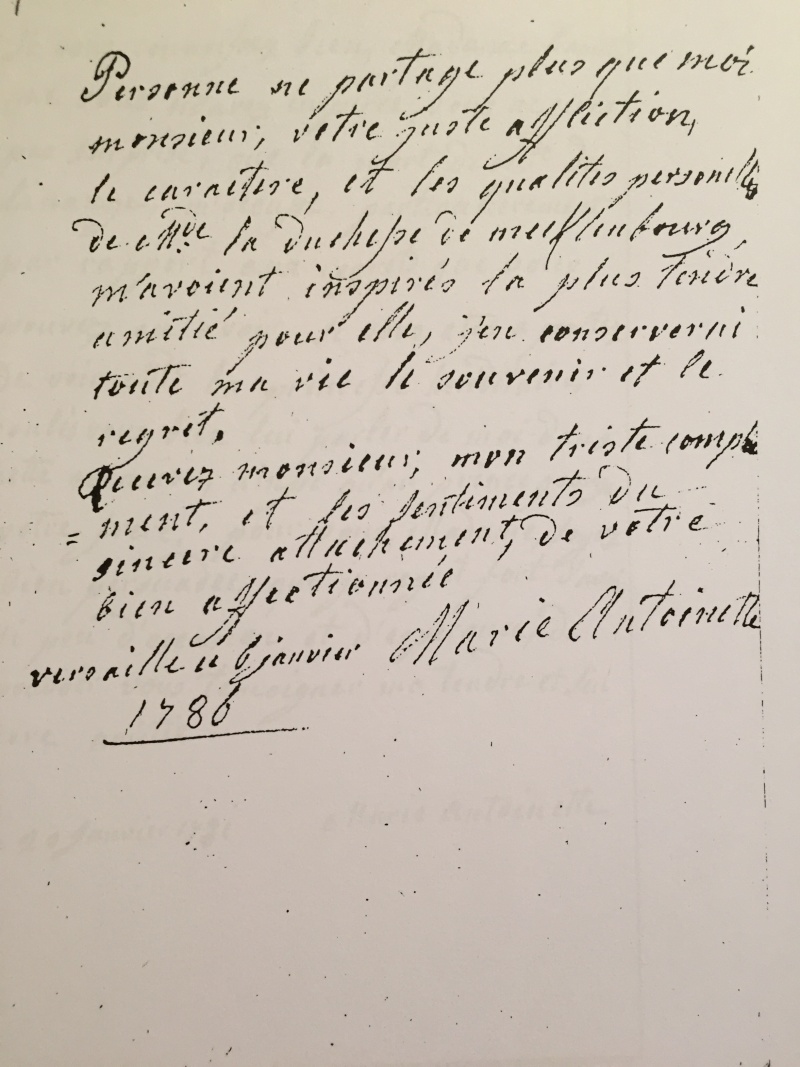 Personne ne partage plus que moi
monsieur, votre juste affliction,
le caractere, et les qualites personelles
de Mde la duchesse de mecklenbourg,
m'avoient inspirés la plus tendre
amitié pour elle, j'en conserverai
toute ma vie le souvenir et le
regret,
Recevez monsieur, mon triste compli
= ment, et les sentiments du
sincere attachement, de votre
bien affectionnée
versaille ce 6 janvier Marie Antoinette
1786